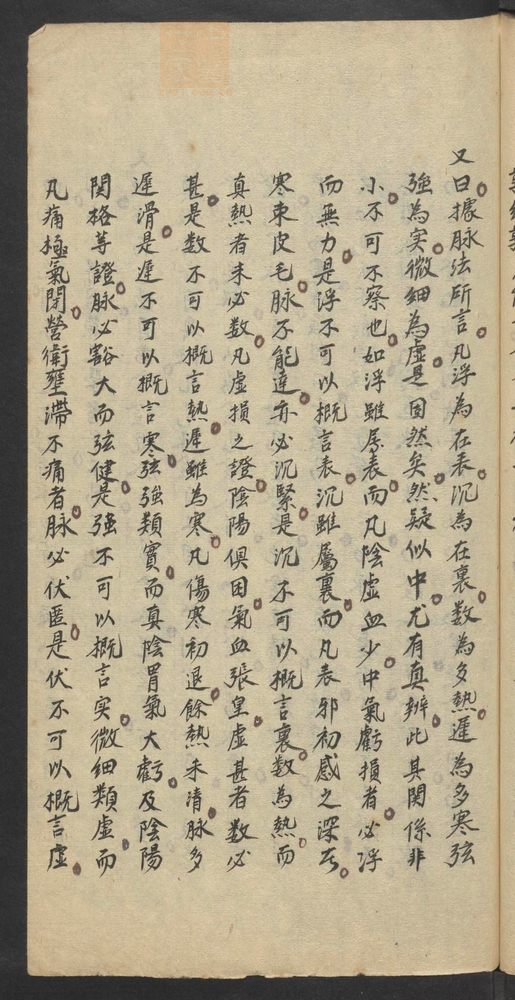 又曰據脉法所言凡浮為在表沉為在裏数為多熱遲為多寒弦
強為实微細為虛是固然矣然疑似中尤有真辨此其関係非
小不可不察也如浮雖属表而凡陰虛血少中氣虧損者必浮
而無力是浮不可以概言表沉雖屬裏而凡表邪初感之深者
寒束皮毛脉不能達亦必沉緊是沉不可以概言裏数為熱而
真熱者未必数凡虛損之證陰陽俱困氣血張皇虛甚者数必
甚是数不可以概言熱遲雖為寒凡傷寒初退餘熱未清脉多
遲滑是遲不可以概言寒弦強類實而真陰胃氣大虧及陰陽
関格等證脉必豁大而弦健是強不可以概言实微細類虛而
凡痛極氣閉營衛壅滯不痛者脉必伏匿是伏不可以概言虛